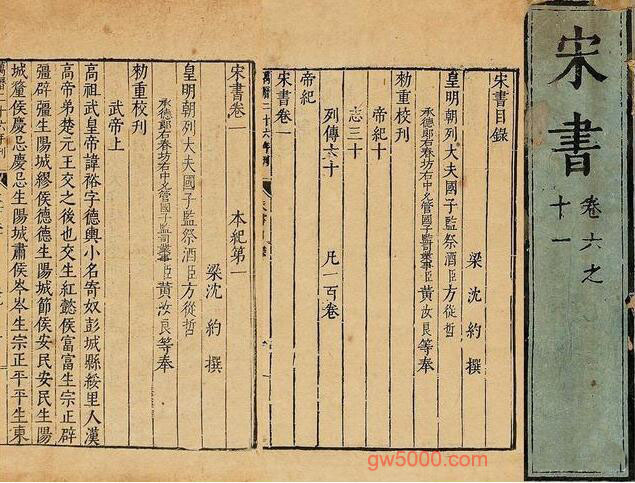 宋書
卷六之
十一
宋書目錄
梁沈約撰
皇明朝列大夫國子監祭酒臣方從哲
承德郎右春坊右中允管國子監司業事臣黃汝良等奉
勑重校刊
帝紀十
志三十
列傳六十
凡一百卷
帝紀
宋書卷一
萬曆二十六年刊
宋書卷一
本紀第一
梁沈約撰
皇明朝列大夫國子監祭酒臣方從哲
承德郎右春坊右中允管國子監司業事臣黃汝良等奉
勑重校刊
武帝上
高祖武皇帝諱裕字德輿小名寄奴彭城縣綏里人漢
高帝弟楚元王交之後也交生紅懿侯富富生宗正辟
彊辟彊生陽城繆侯德德生陽城節侯安民安民生陽
城釐侯慶忌慶忌生陽城肅侯岑岑生宗正平平生東
萬曆二十六年刊
gw5000.com